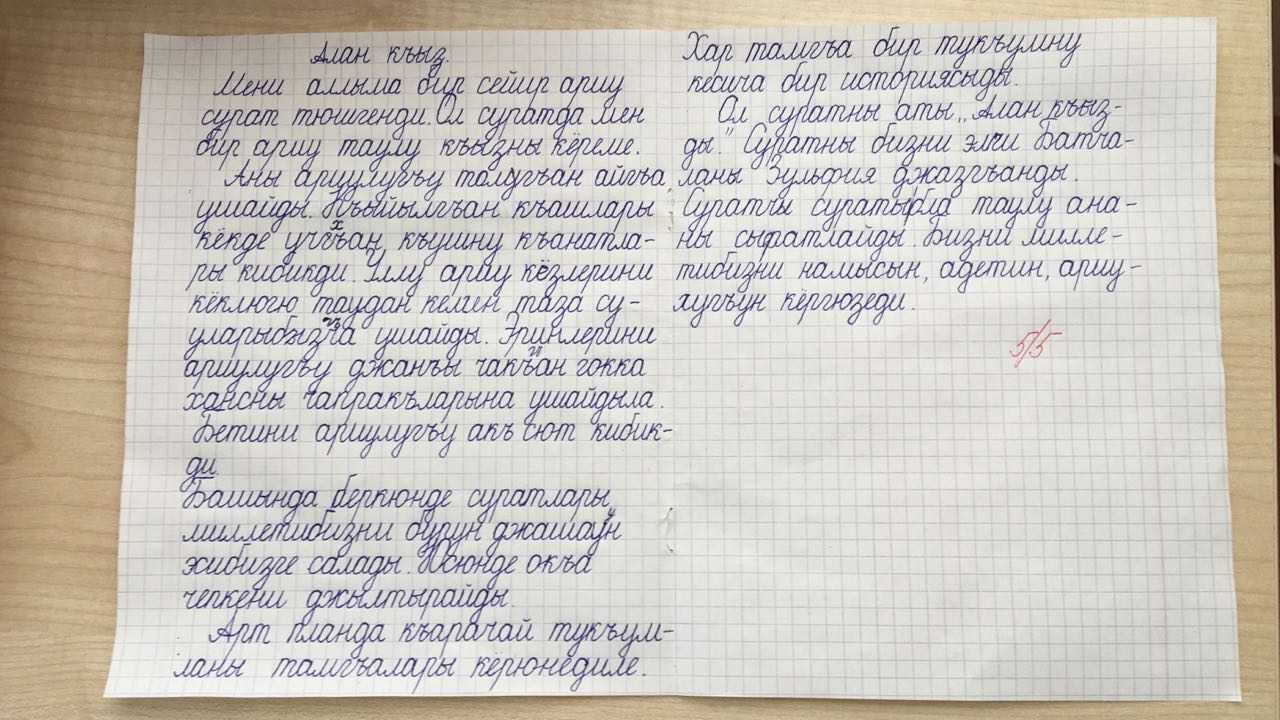 Алан къыз.
Мени аллыма бир сейир ариу
сурат тюшгенди. Ол суратда мен
бир ариу таулу къызны кёреме.
Аны ариулугъу толугъан айгъа
ушайды. Къыйылгъан къашлары
кёкде учхан къушну къанатла-
ры кибикди. Уллу ариу кёзлерини
кёклюгю таудан келген таза су-
уларыбызгъа ушайды. Эринлерини
ариулугъу джанъы чакъгъан гокка
хансны чапракъларына ушайдыла.
Бетини ариулугъу акъ сют кибик-
ди.
Башында беркюнде суратлары
миллетибизни бурун джашауун
эсибизге салады. Юсюнде окъа
чепкени джылтырайды.
Арт планда къарачай тукъум-
ланы тамгъалары кёрюнедиле.
Хар тамгъа бир тукъумну
кесича бир историясыды.
Ол суратны аты „Алан къыз-
ды." Суратны бизни элчи Батча-
ланы Зульфия джазгъанды.
Суратчы суратыбла таулу ана-
ны сыфатлайды. Бизни милле-
тибизни намысын, адетин, ариу-
лугъун кёргюзеди.
5/5